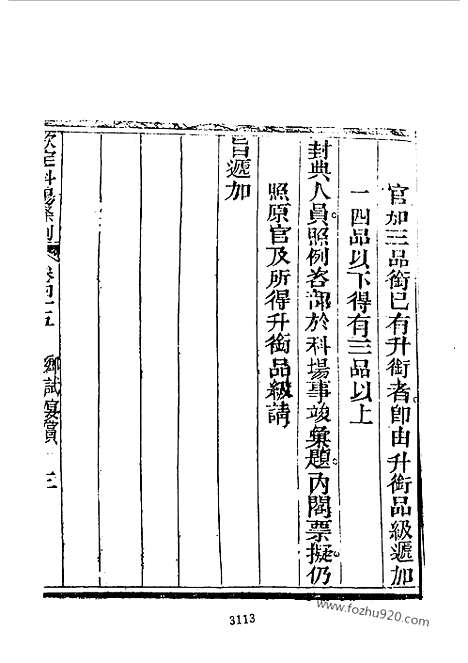 官加三品銜已有升銜者卽由升銜品級遞加
一四品以下得有三品以上
封典人員照例咨部於科場事竣彙題內閣票擬仍
照原官及所得升銜品級請
旨遞加
欽定科場條例 卷四十五 鄉試宴賞 三
3113
www.fozhu920.com